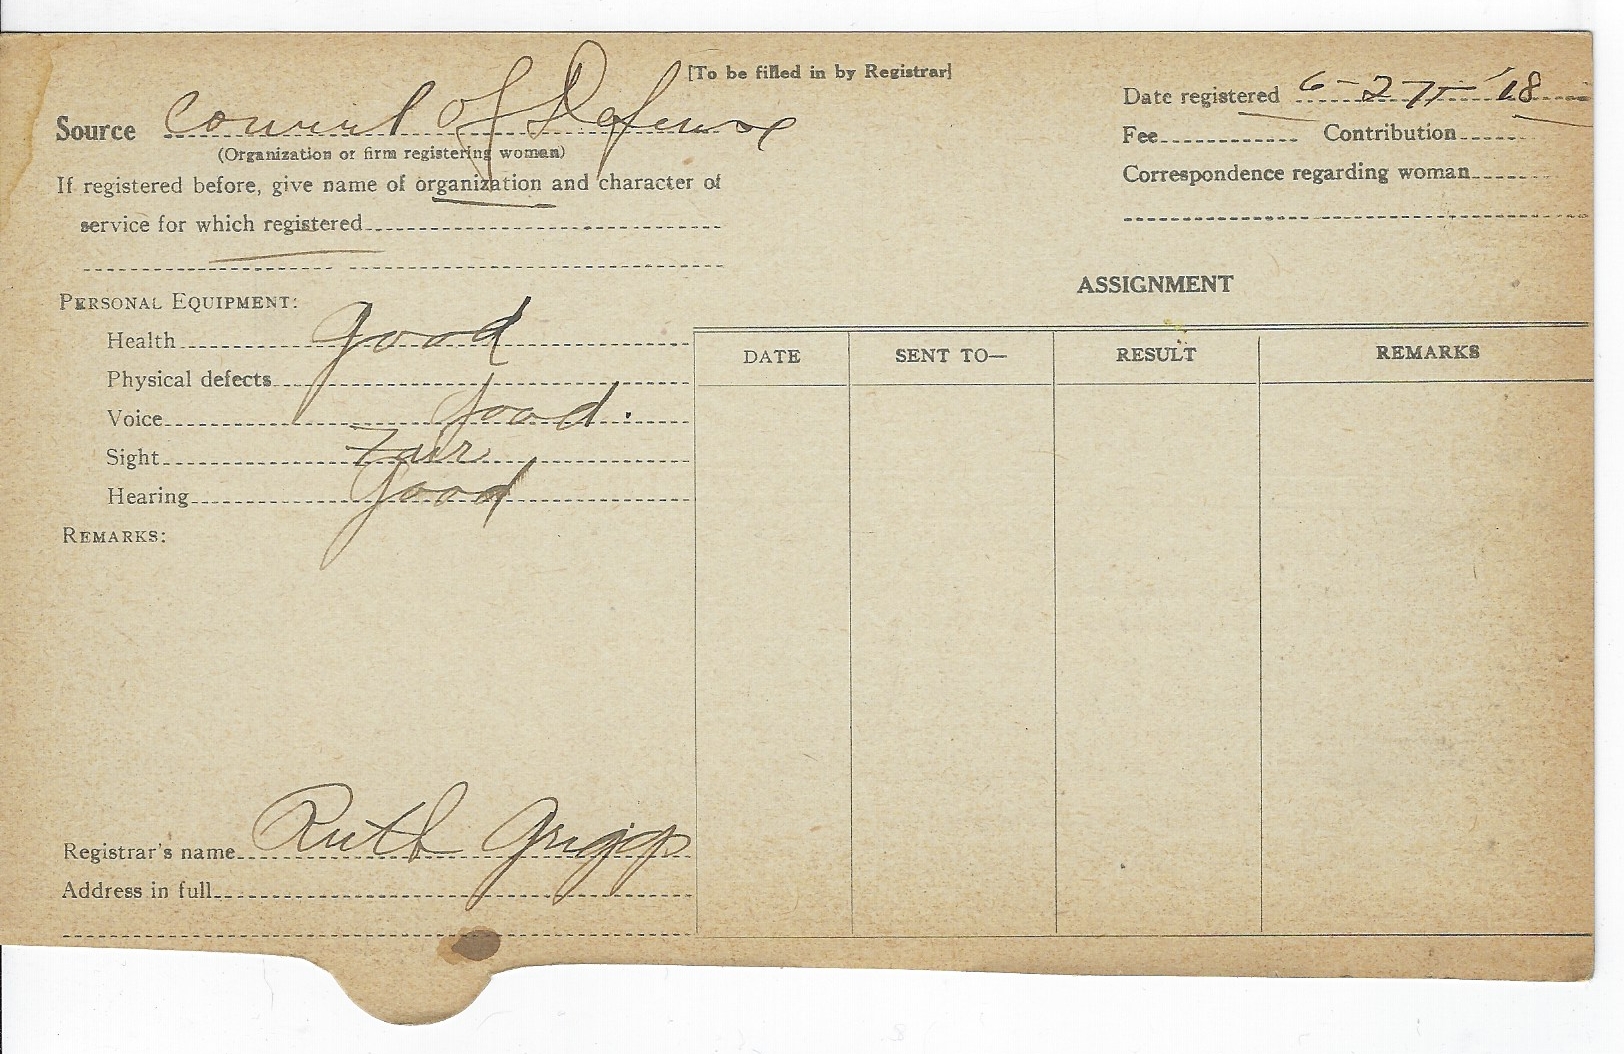 [To be filled in by Registrar]
Date registered 6-27-'18
Source Council of Defense
(Organization or firm registering woman)
Fee Contribution
If registered before, give name of organization and character of
Correspondence regarding woman
service for which registered
ASSIGNMENT
PERSONAL EQUIPMENT:
Health Good
DATE SENT TO— RESULT REMARKS
Physical defects
Voice Good.
Sight Fair
Hearing Good
REMARKS:
Registrar's name Ruth Griggs
Address in full